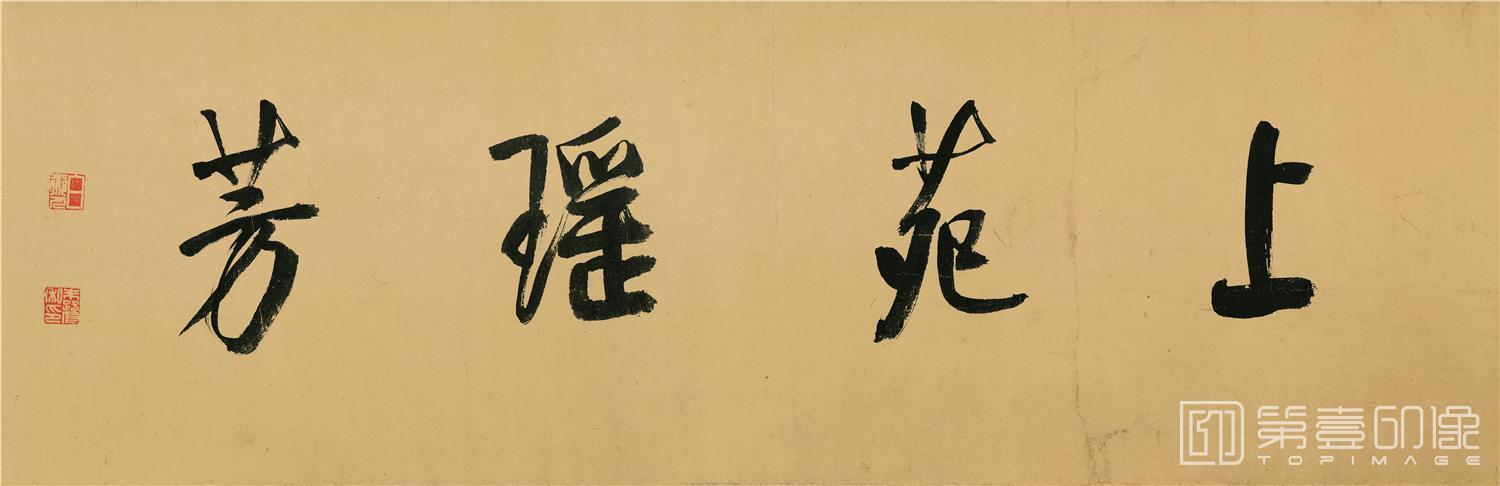 上苑瑶芳
第壹印像
TOPIMAGE